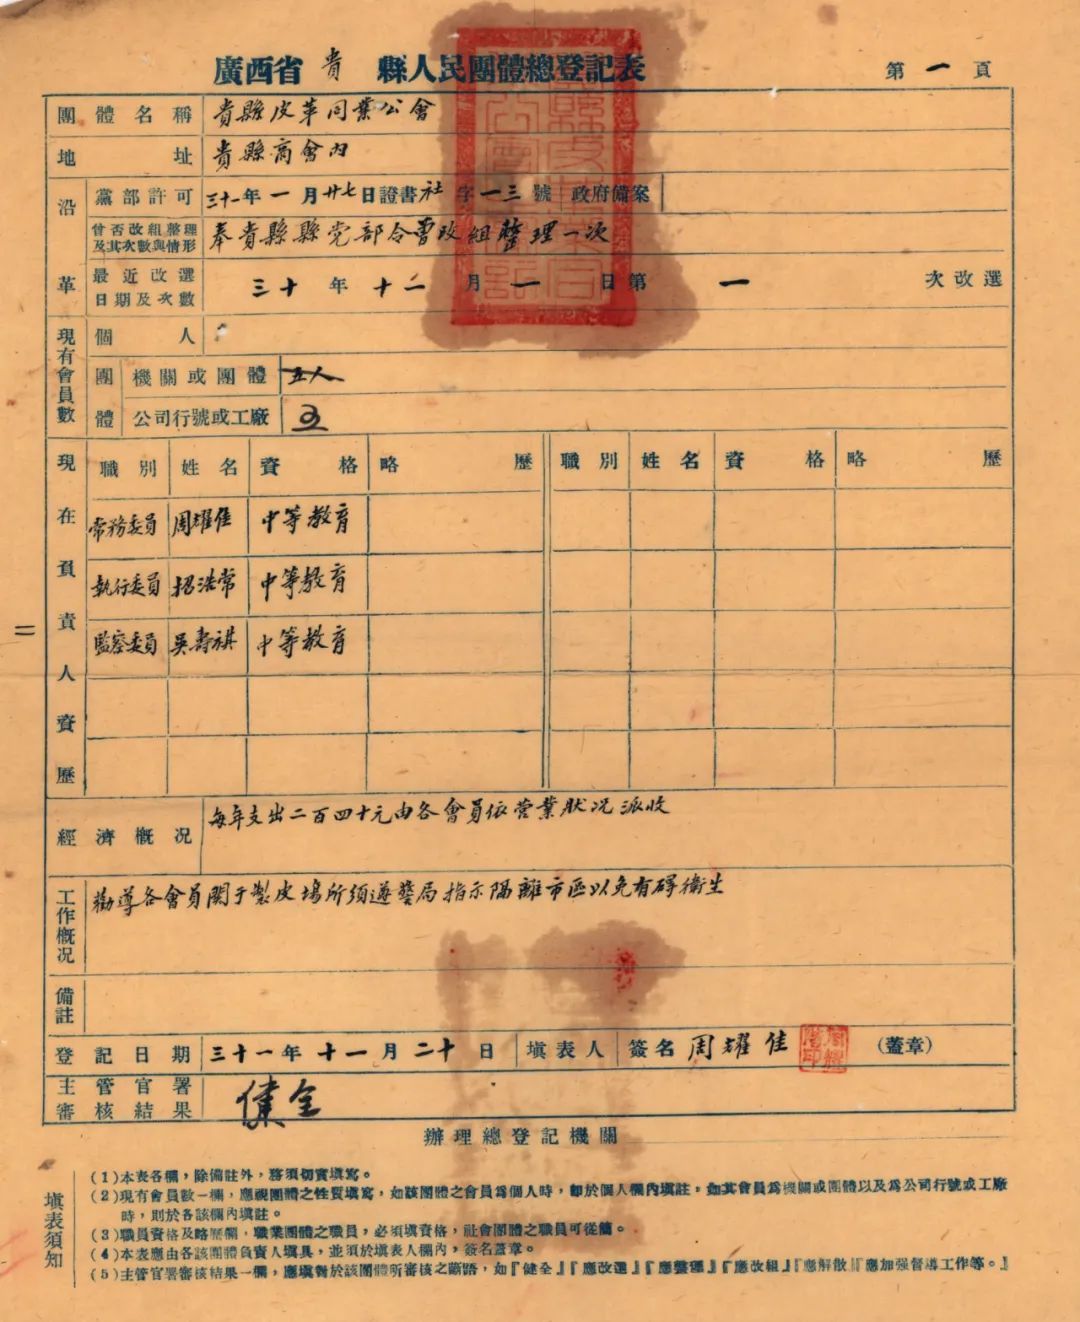 廣西省 貴 縣人民團體總登記表 第一頁
團體名稱 貴縣皮革同業公會
地址 貴縣商會內
沿革
黨部許可 三十一年一月廿七日證書社字一三號 政府備案
曾否改組整理及其次數與情形 奉貴縣縣党部令曹改組整理一次
最近改選日期及次數 三十年十二月一日第一次改選
現有會員數
個人
團體 機關或團體 五人
公司行號或工廠 五
現在負責人資歷
職別 姓名 資格 略歷 職別 姓名 資格 略歷
常務委員 周耀佳 中等教育
執行委員 招浩常 中等教育
監察委員 吳壽祺 中等教育
經濟概況 每年支出二百四十元由各會員依營業狀况派收
工作概况 勸導各會員關于製皮場所須遵警局指示隔離市區以免有碍衛生
備註
登記日期 三十一年十一月二十日 填表人 簽名 周耀佳 (蓋章)
主管官署審核結果 健全
辦理總登記機關
填表須知
(1)本表各欄,除備註外,務須切實填寫。
(2)現有會員數一欄,應視團體之性質填寫,如該團體之會員為個人時,卽於個人欄內填註,如其會員為機關或團體以及為公司行號或工廠
時,則於各該欄內填註。
(3)職員資格及略歷欄,職業團體之職員,必須填資格,社會團體之職員可從簡。
(4)本表應由各該團體負責人填具,並須於填表人欄內,簽名蓋章。
(5)主管官署審核結果一欄,應填對於該團體所審核之斷語,如『健全』『應改選』『應整理』『應改組』『應解散』『應加强督導工作等。』